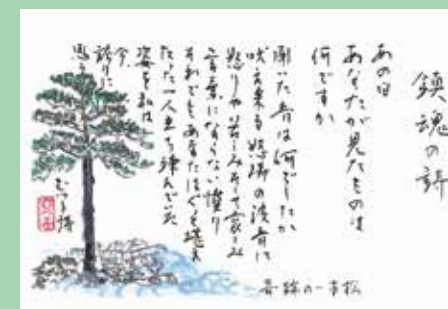 鎮魂の詩
あの日
あなたが見たものは
何ですか
聞いた音は何でしたか
吠え来る怒濤の波音に
怒りや苦しみそして哀しみ
言葉にならない憤り
それでもあなたはぐっと堪え
たった一人立ち竦んでいた
姿を私は
今、
誇りに
思う
奇跡の一本松